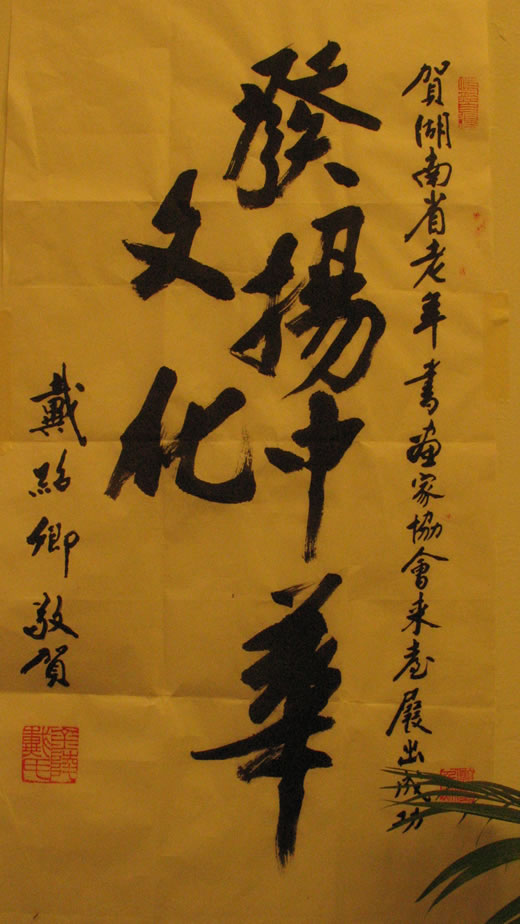 賀湖南省老年書画家協會来臺展出成功
發揚中華
文化
戴紹卿敬賀